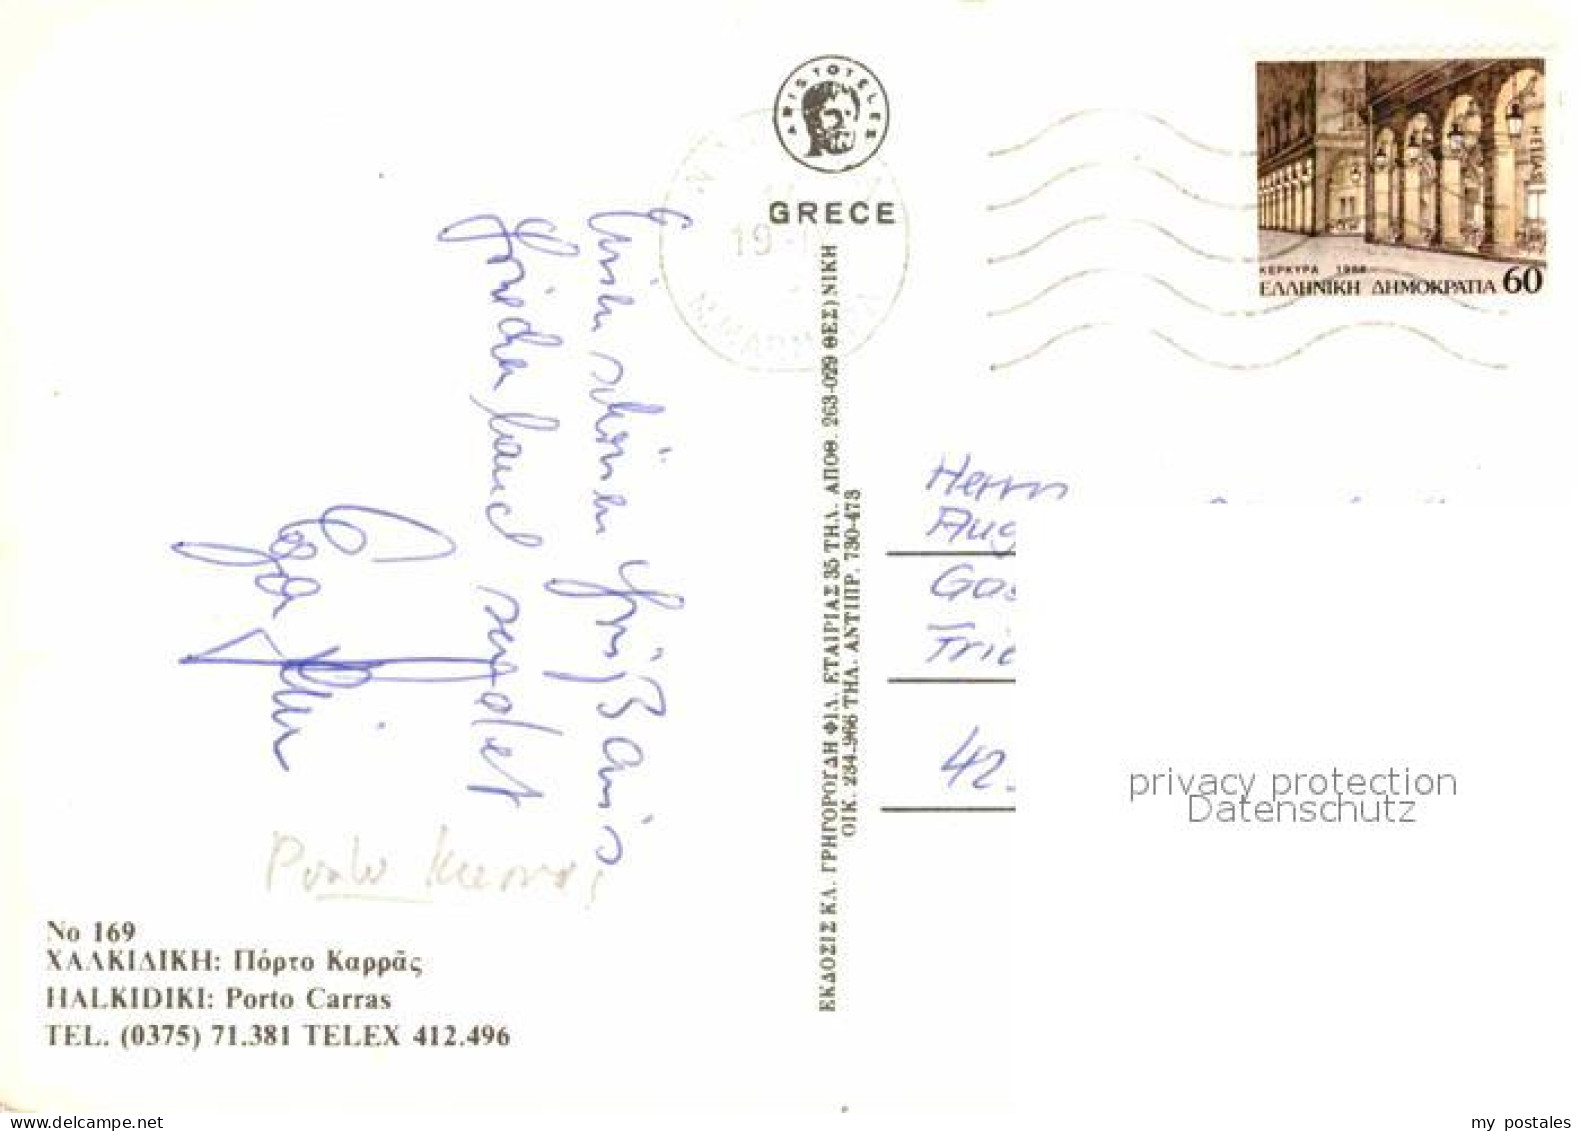 ARISTOTELES
GRECE
19
ΚΕΡΚΥΡΑ 1988
ΕΛΛΗΝΙΚΗ ΔΗΜΟΚΡΑΤΙΑ 60
schönen Gruß aus
Griechenland sendet
Herrn
Aug
Gas
Trie
42
privacy protection
Datenschutz
ΕΚΔΟΣΙΣ ΚΛ. ΓΡΗΓΟΡΟΥΔΗ ΦΙΛ. ΕΤΑΙΡΙΑΣ 35 ΤΗΛ. ΑΠΟΘ. 263-029 ΘΕΣ)ΝΙΚΗ
ΟΙΚ. 234-966 ΤΗΛ. ΑΝΤΙΠΡ. 730-473
No 169
ΧΑΛΚΙΔΙΚΗ: Πόρτο Καρράς
HALKIDIKI: Porto Carras
TEL. (0375) 71.381 TELEX 412.496
my postales